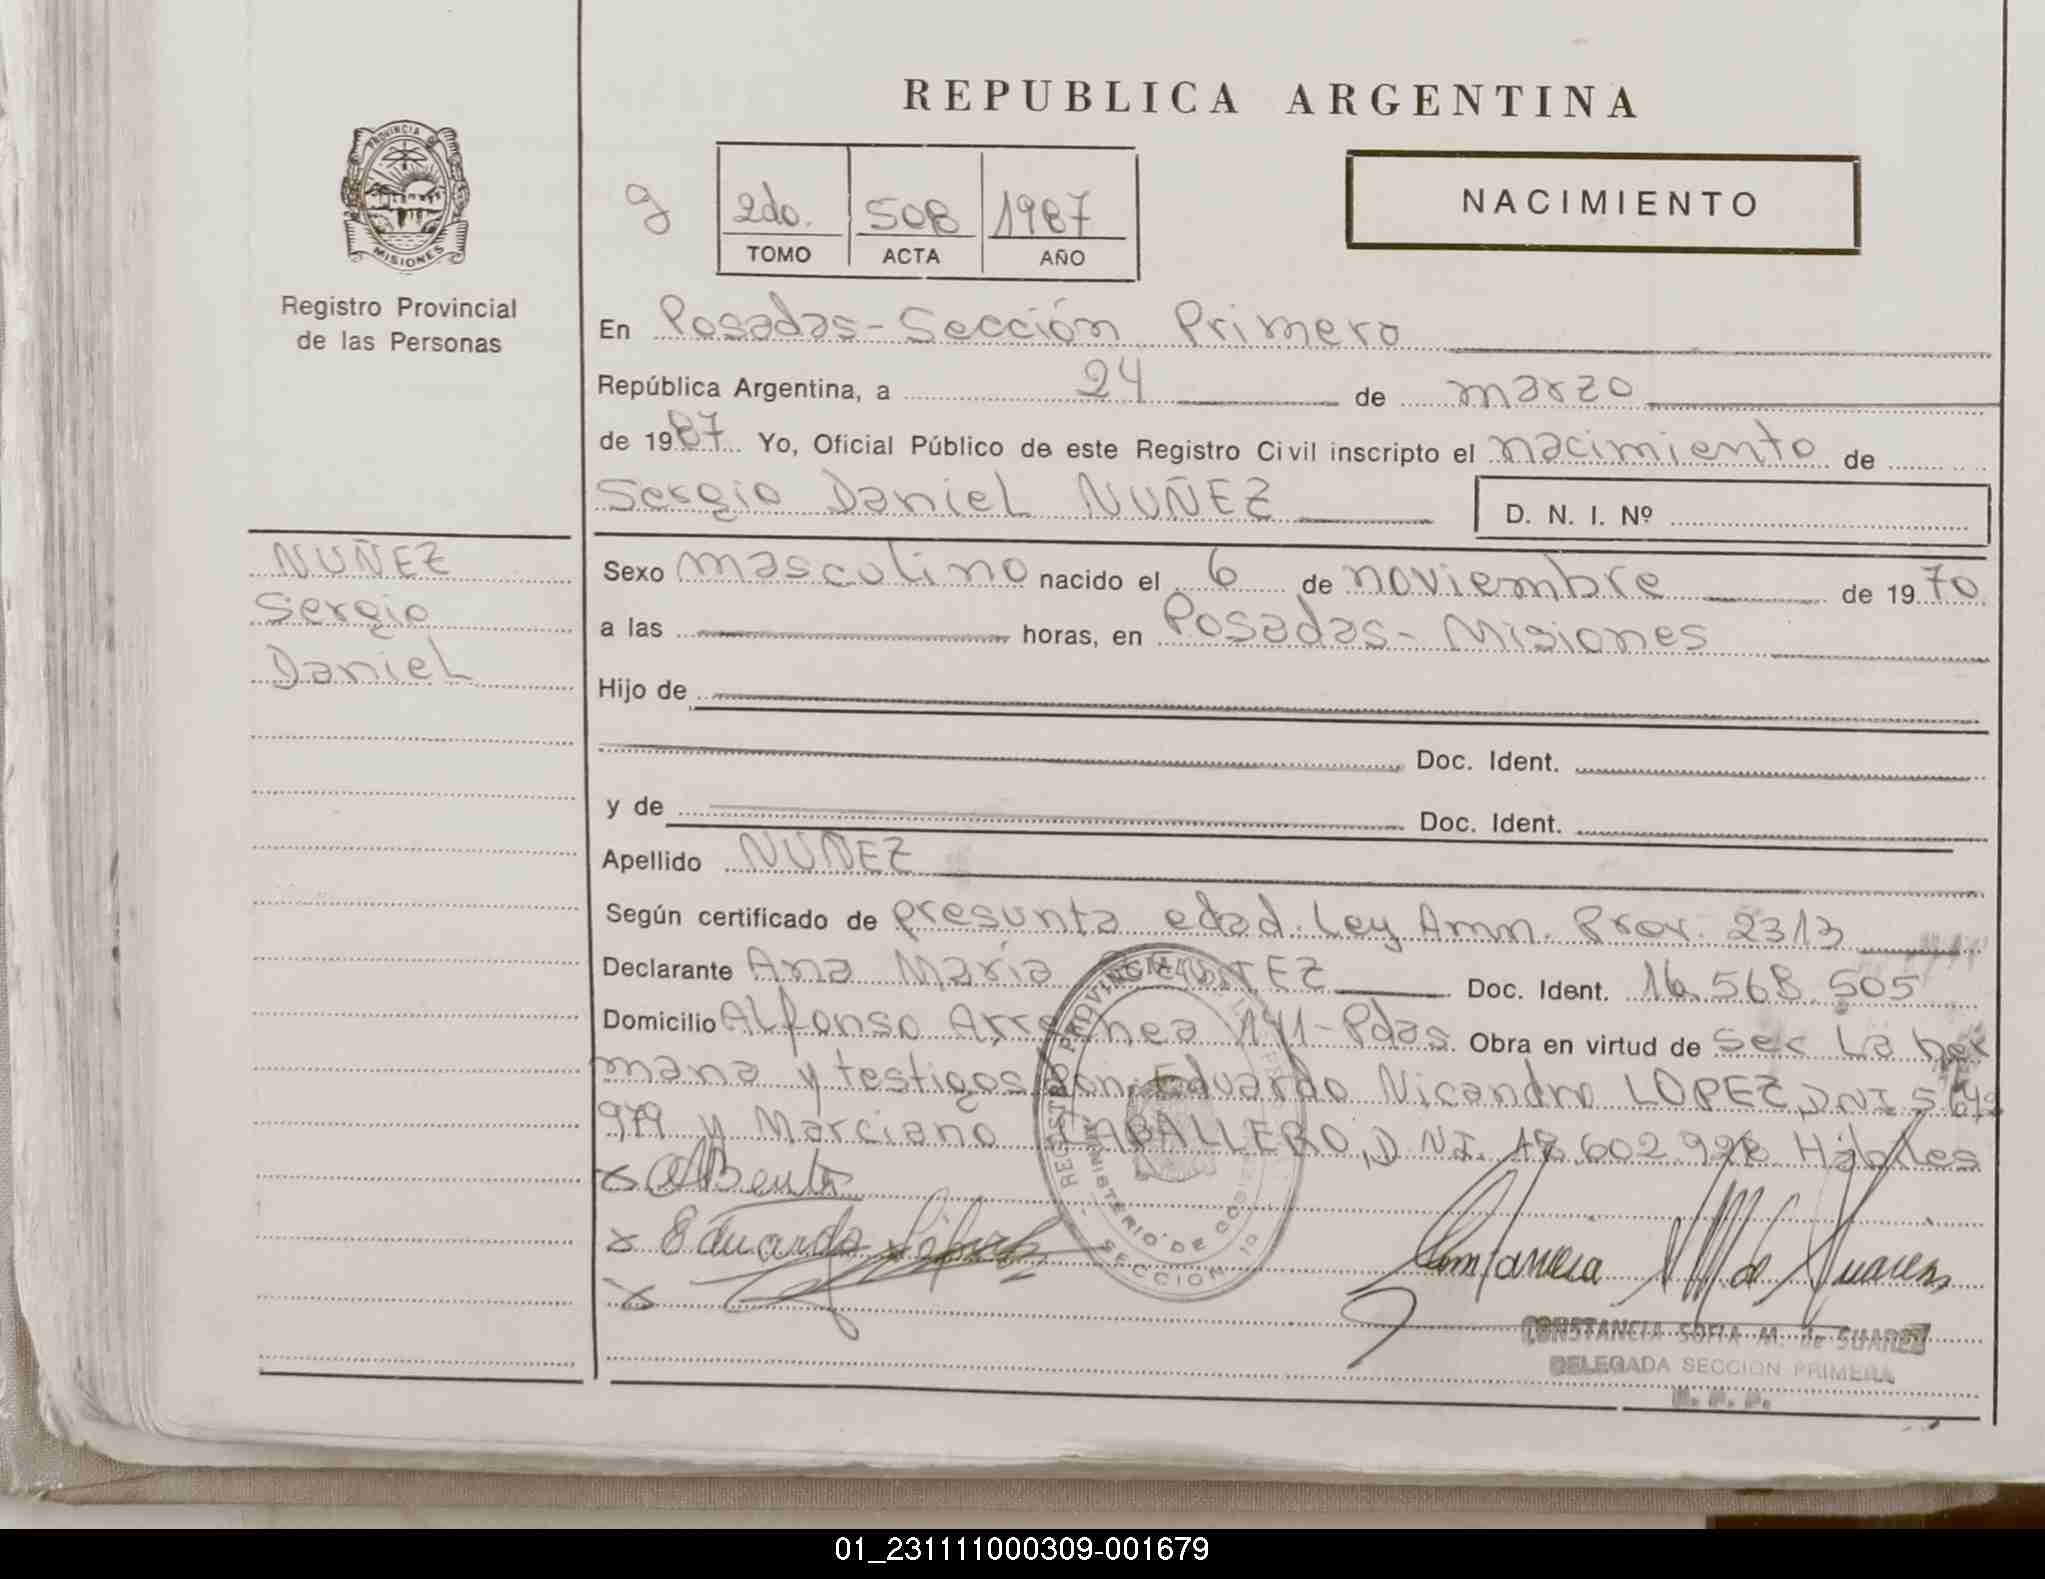 REPUBLICA ARGENTINA
PROVINCIA DE
MISIONES
Registro Provincial
de las Personas
g
2do. 508 1987
TOMO ACTA AÑO
NACIMIENTO
En Posadas-Sección Primero
República Argentina, a 24 de marzo
de 1987 Yo, Oficial Público de este Registro Civil inscripto el nacimiento de
Sergio Daniel NUÑEZ D. N. I. Nº
NUÑEZ
Sergio
Daniel
Sexo masculino nacido el 6 de noviembre de 1970
a las horas, en Posadas-Misiones
Hijo de
Doc. Ident.
y de Doc. Ident.
Apellido NUÑEZ
Según certificado de presunta edad. Ley Amn. Prov. 2313
Declarante Ana María Doc. Ident. 16.568.505
Domicilio Alfonso 141-Pdas. Obra en virtud de ser la her
mana y testigos son: Eduardo Nicandro LOPEZ, DNI
979 y Marciano CABALLERO, D.N.I. 18.602.928 Hábiles
x
x Eduardo
x
REGISTRO PROVINCIAL DE
MINISTERIO DE
SECCION
CONSTANCIA SOFIA M. de SUAREZ
DELEGADA SECCION PRIMERA
01_231111000309-001679